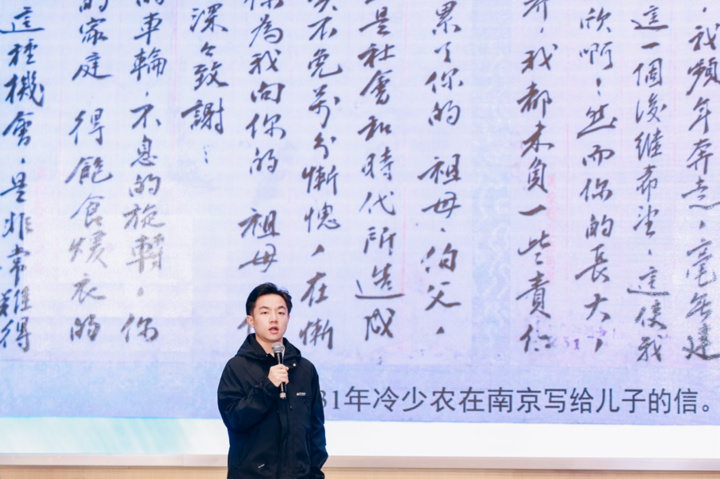 我頻年奔走，毫無建
這一個後继希望，這使我
欣啊！然而你的長大，
，我都未負一些責任
累了你的祖母，伯父，
是社會和時代所造成
不免萬分慚愧，在慚
為我向你的 祖母
深々致謝：
的車輪，不息的旋轉，你
的家庭 得飽食煖衣的
這種機會，是非常難得
31年冷少农在南京写给儿子的信。